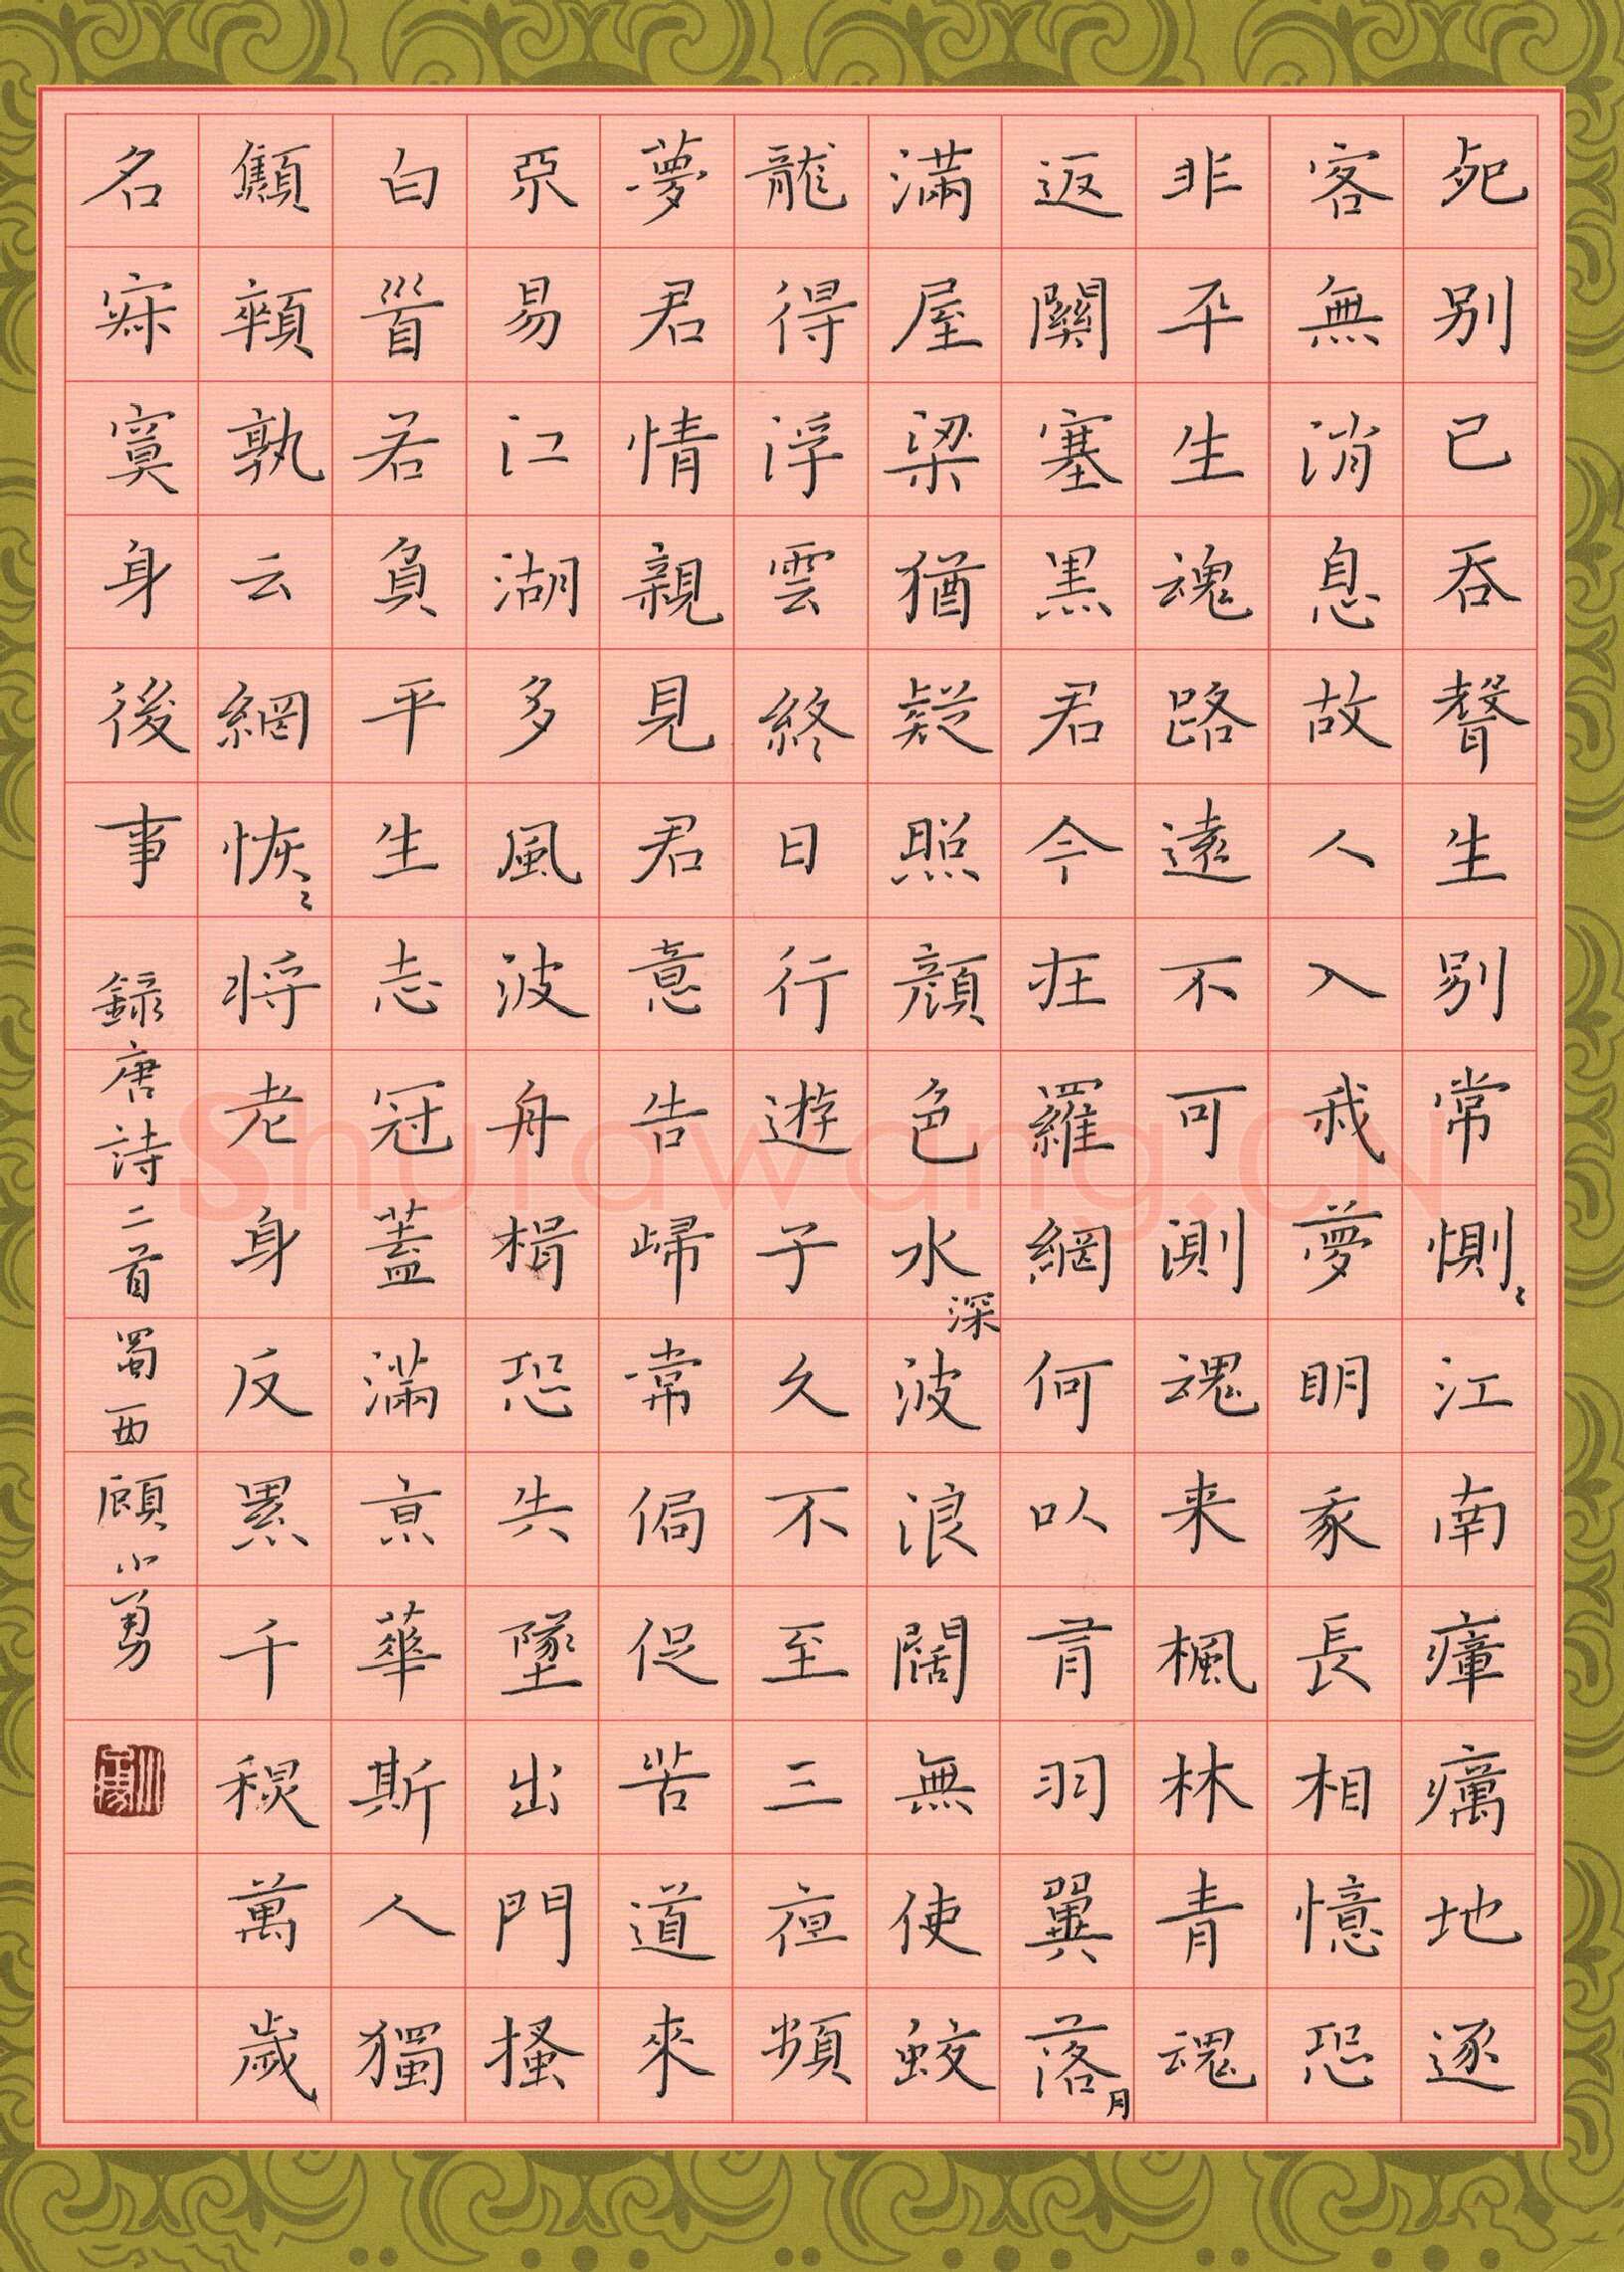 死别已吞聲生别常惻〻江南瘴癘地逐
客無消息故人入我夢明我長相憶恐
非平生魂路遠不可測魂来楓林青魂
返關塞黑君今在羅網何以有羽翼落月
滿屋梁猶疑照顏色水深波浪闊無使蛟
龍得浮雲終日行遊子久不至三夜頻
夢君情親見君意告歸常侷促苦道來
不易江湖多風波舟楫恐失墜出門搔
白首若負平生志冠蓋滿京華斯人獨
顦顇孰云網恢〻將老身反累千秋萬歲
名寂寞身後事 録唐詩二首蜀西顧小勇
Shufawang.CN